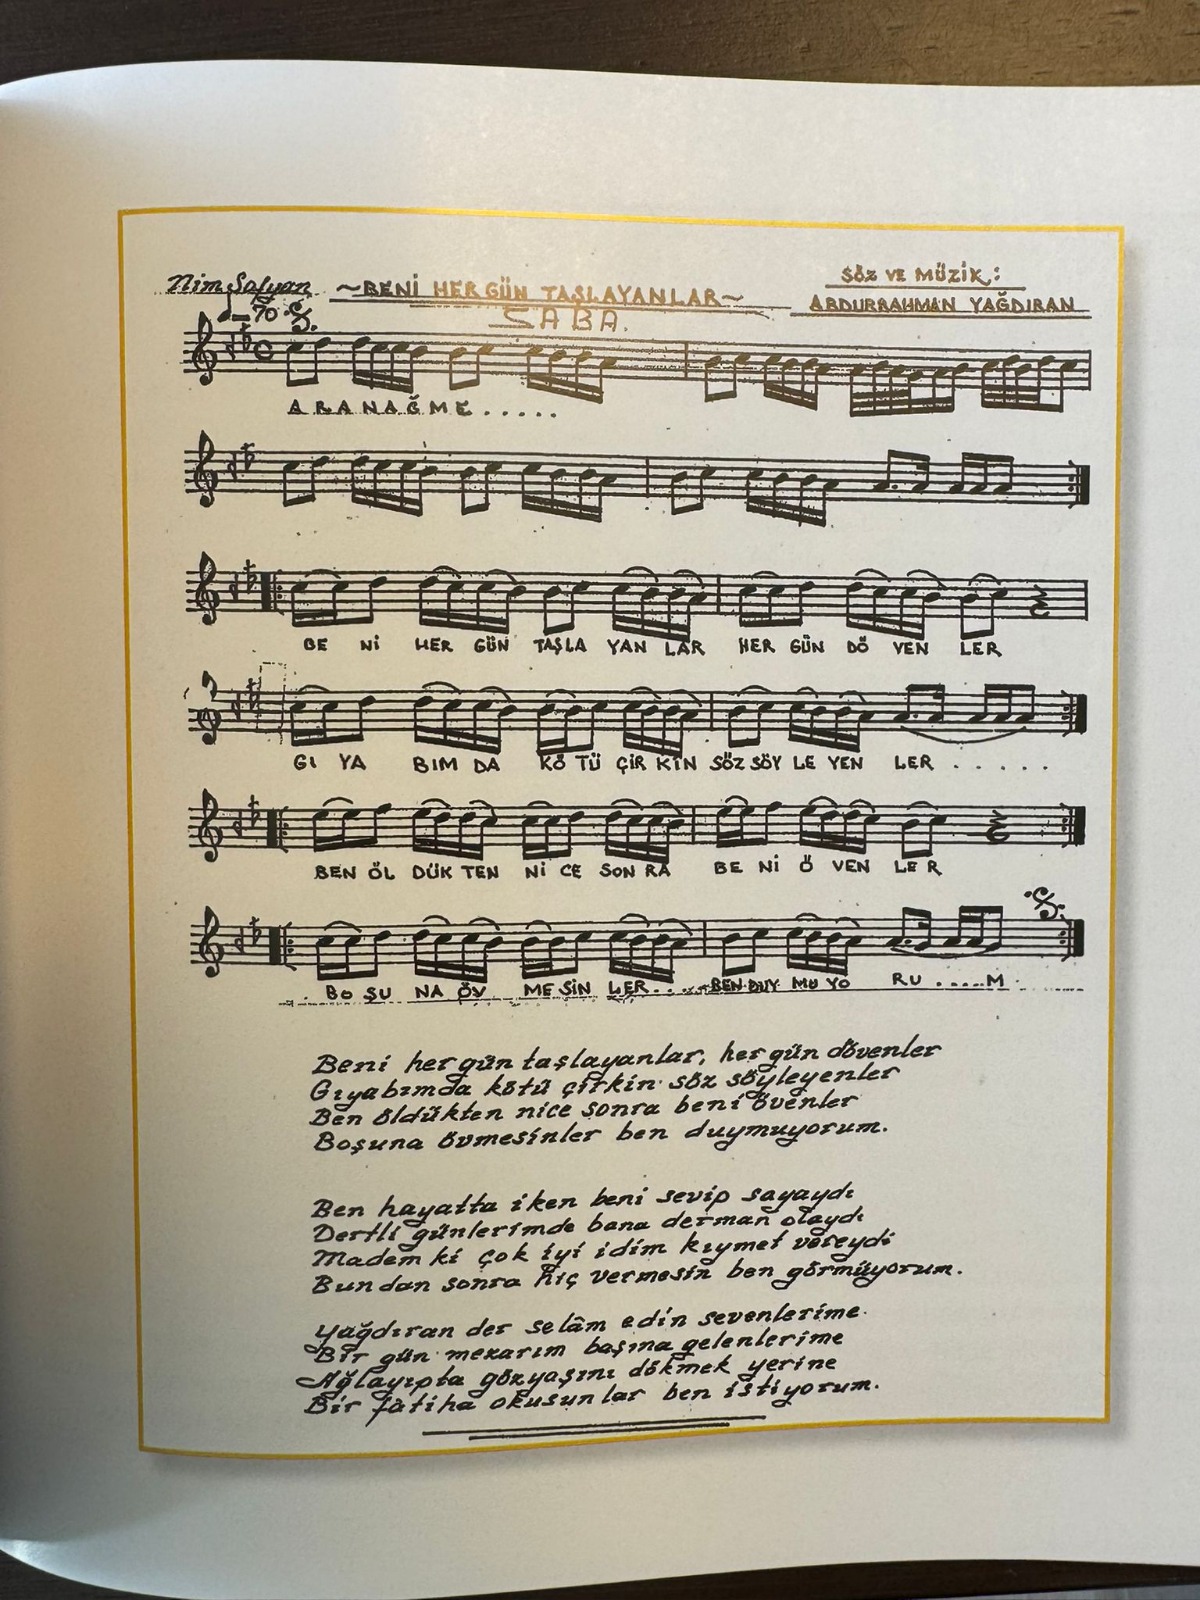 Nim Sofyan
~BENİ HER GÜN TAŞLAYANLAR~
SÖZ VE MÜZİK:
ABDURRAHMAN YAĞDIRAN
=70
SABA.
ARANAĞME.....
BE Nİ HER GÜN TAŞLA YAN LAR HER GÜN DÖ VEN LER
GI YA BIM DA KÖ TÜ ÇİR KİN SÖZ SÖY LE YEN LER .....
BEN ÖL DÜK TEN Nİ CE SON RA BE Nİ Ö VEN LE R
BO ŞU NA ÖV ME SİN LER... BEN DUY MU YO RU .....M
Beni her gün taşlayanlar, her gün dövenler
Gıyabımda kötü çirkin söz söyleyenler
Ben öldükten nice sonra beni övenler
Boşuna övmesinler ben duymuyorum.
Ben hayatta iken beni sevip sayaydı
Dertli günlerimde bana derman olaydı
Madem ki çok iyi idim kıymet vereydi
Bundan sonra hiç vermesin ben görmüyorum.
Yağdıran der selâm edin sevenlerime
Bir gün mezarım başına gelenlerime
Ağlayıpta gözyaşını dökmek yerine
Bir fâtiha okusunlar ben istiyorum.